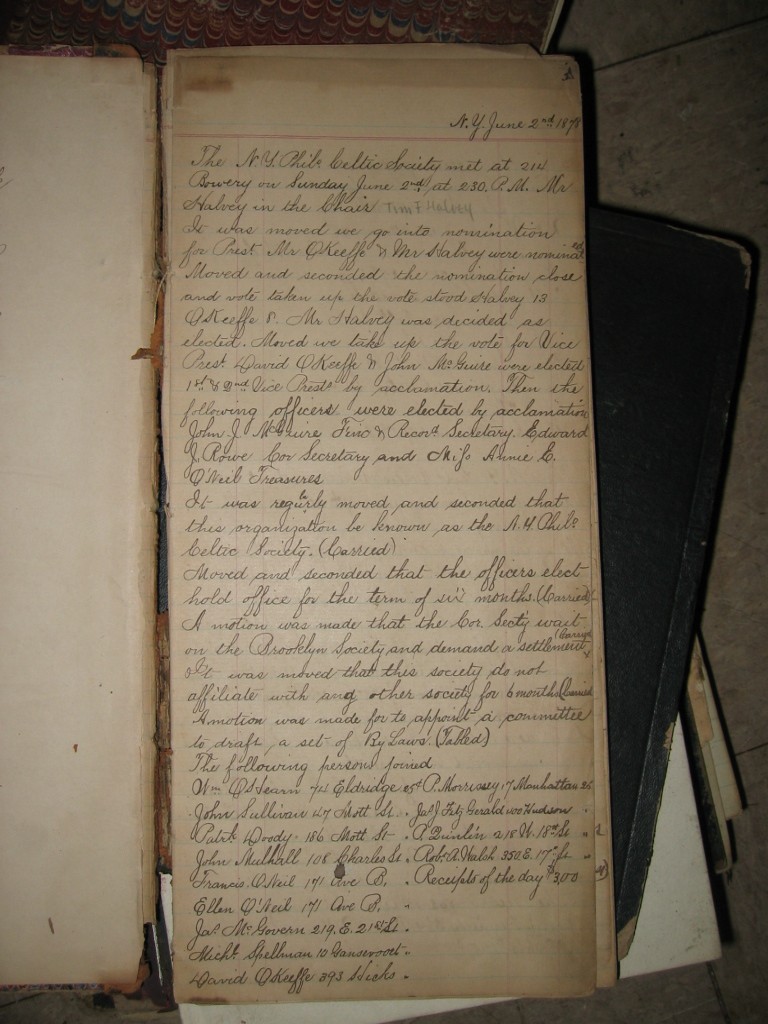 N.Y. June 2nd 1878
The N.Y. Philo Celtic Society met at 214
Bowery on Sunday June 2nd at 2.30. P.M. Mr
Halvey in the Chair Tim F Halvey
It was moved we go into nomination
for Prest Mr O'Keeffe & Mr Halvey were nominated
Moved and seconded the nomination close
and vote taken up the vote stood Halvey 13
O'Keeffe 8. Mr Halvey was decided as
elected. Moved we take up the vote for Vice
Prest David O'Keeffe & John McGuire were elected
1st & 2nd Vice Prests by acclamation. Then the
following officers were elected by acclamation
John J. McGuire Finc & Record Secretary. Edward
J. Rowe Cor Secretary and Miss Annie E.
O'Neil Treasures
It was regurly moved and seconded that
this organization be known as the N.Y. Philo
Celtic Society. (Carried)
Moved and seconded that the officers elect
hold office for the term of six months. (Carried)
A motion was made that the Cor. Secty wait
on the Brooklyn Society and demand a settlement (Carried)
It was moved that this society do not
affiliate with any other society for 6 months (Carried
A motion was made for to appoint a committee
to draft a set of By Laws. (Tabled)
The following persons joined
Wm O'Hearn 74 Eldridge P. Morrissey 17 Manhattan 25
John Sullivan 47 Mott St. Jas J Fitz Gerald 100 Hudson
Patrk Doody 186 Mott St P. Quinlin 218 W. 18th St
John Mulhall 108 Charles St. Robt A. Walsh 350 E. 17th St
Francis O'Neil 171 Ave B. Receipts of the day $3,00
Ellen O'Neil 171 Ave B.
Jas McGovern 219. E. 21st St.
Michl Spellman 10 Gansevoort
David O'Keeffe 393 Hicks